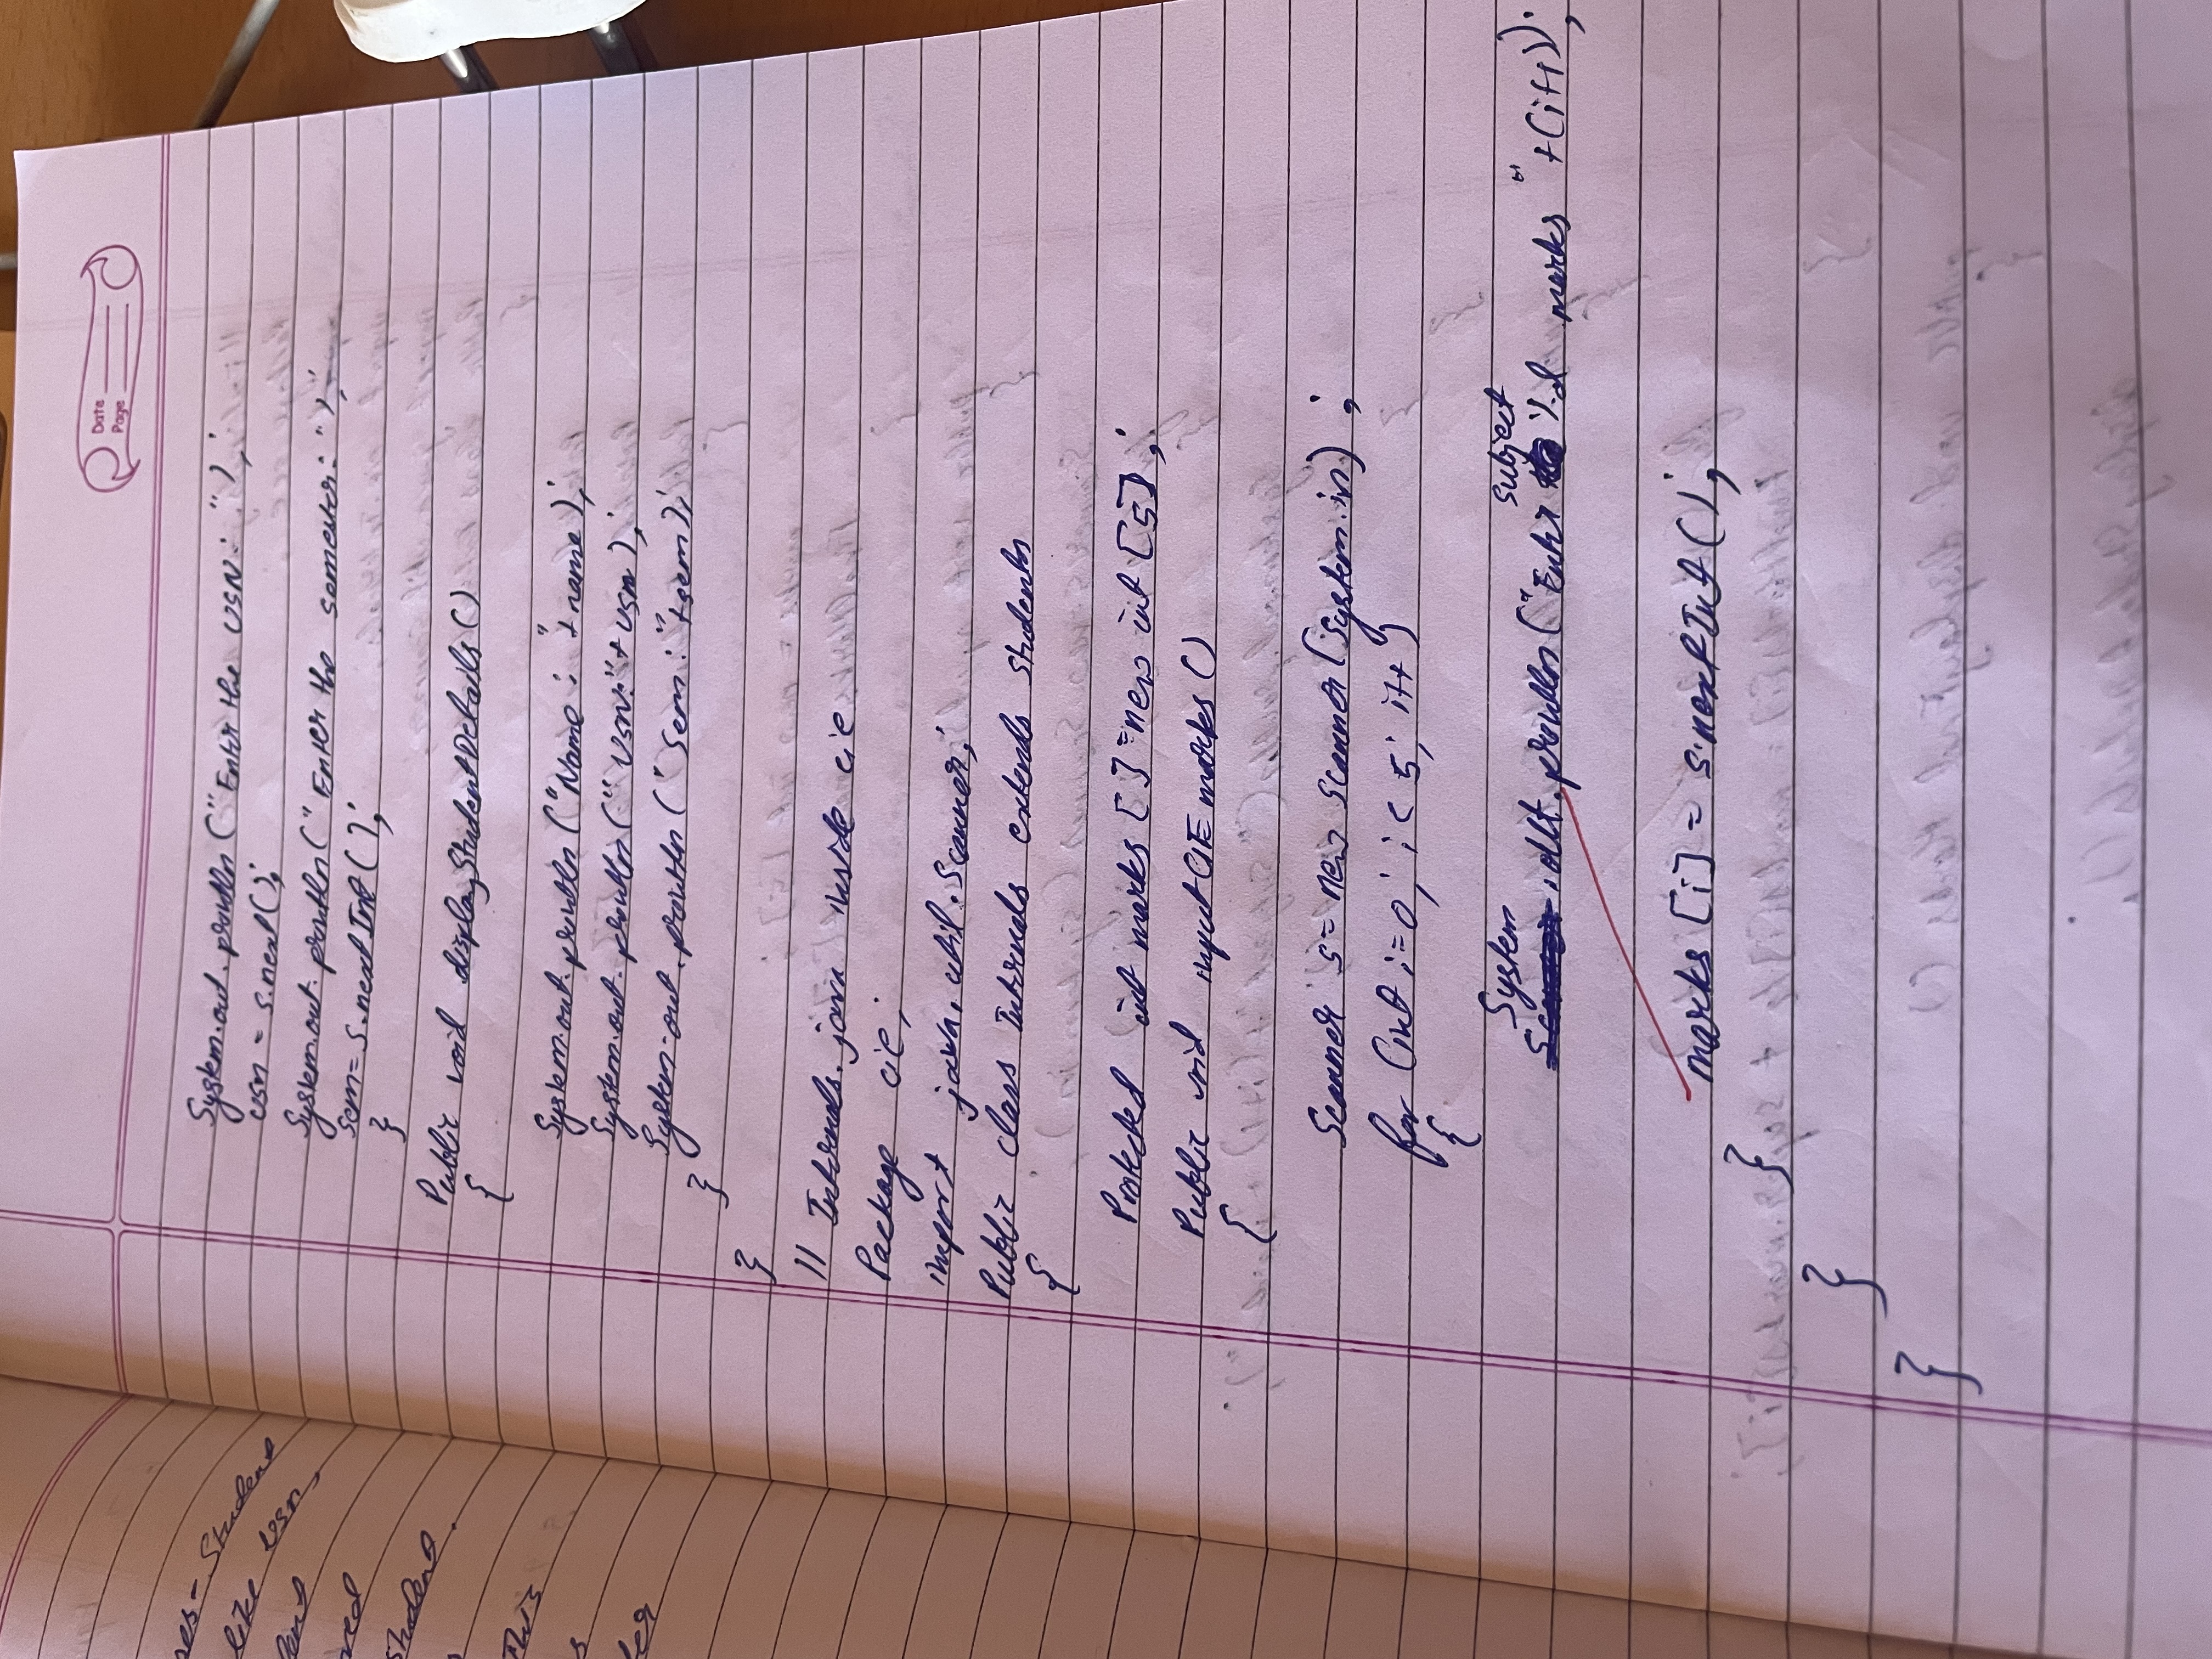 Date
Page
res - Student
like usn,
student.
This
System.out.println ("Enter the USN: ");
usn = s.next();
System.out.println ("Enter the semester: ");
sem = s.nextInt ();
}
Public void displayStudentDetails ()
{
System.out.println ("Name : "+name);
System.out.println (" USN:"+ usn);
System.out.println (" Sem : "+sem);
}
}
// Internals.java inside cie
Package cie;
import java.util.Scanner;
Public class Internals extends Students
{
Protected int marks [ ] = new int [5];
Public void inputCIE marks ()
{
Scanner s = new Scanner (System.in) ;
for (int i=0; i < 5; i++ )
{
System .out.println ("Enter subject %d marks " +(i+1));
marks [i] = s.nextInt ();
}
}
}